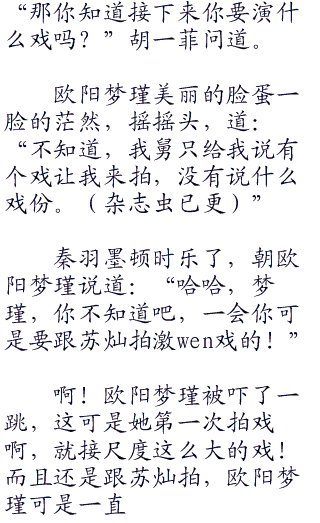 “那你知道接下来你要演什
么戏吗？”胡一菲问道。
欧阳梦瑾美丽的脸蛋一
脸的茫然，摇摇头，道：
“不知道，我舅只给我说有
个戏让我来拍，没有说什么
戏份。（杂志虫已更）”
秦羽墨顿时乐了，朝欧
阳梦瑾说道：“哈哈，梦
瑾，你不知道吧，一会你可
是要跟苏灿拍激wen戏的！”
啊！欧阳梦瑾被吓了一
跳，这可是她第一次拍戏
啊，就接尺度这么大的戏！
而且还是跟苏灿拍，欧阳梦
瑾可是一直